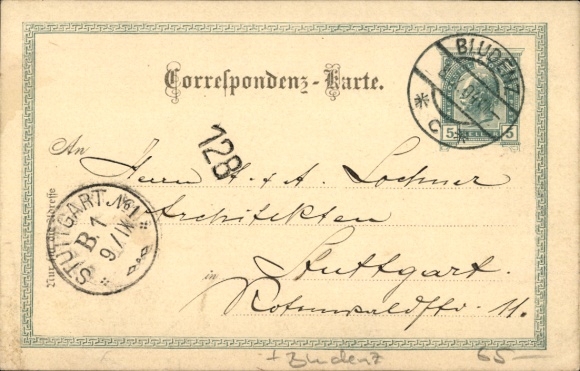 Correspondenz-Karte.
BLUDENZ
C
5 5
128
An Herrn A. & A. Lochner
Architekten
in Stuttgart.
Rotenwaldstr. 11.
Nur für die Adresse
STUTTGART. No 1
B. 1
9/IX
+ Bludenz 65.—